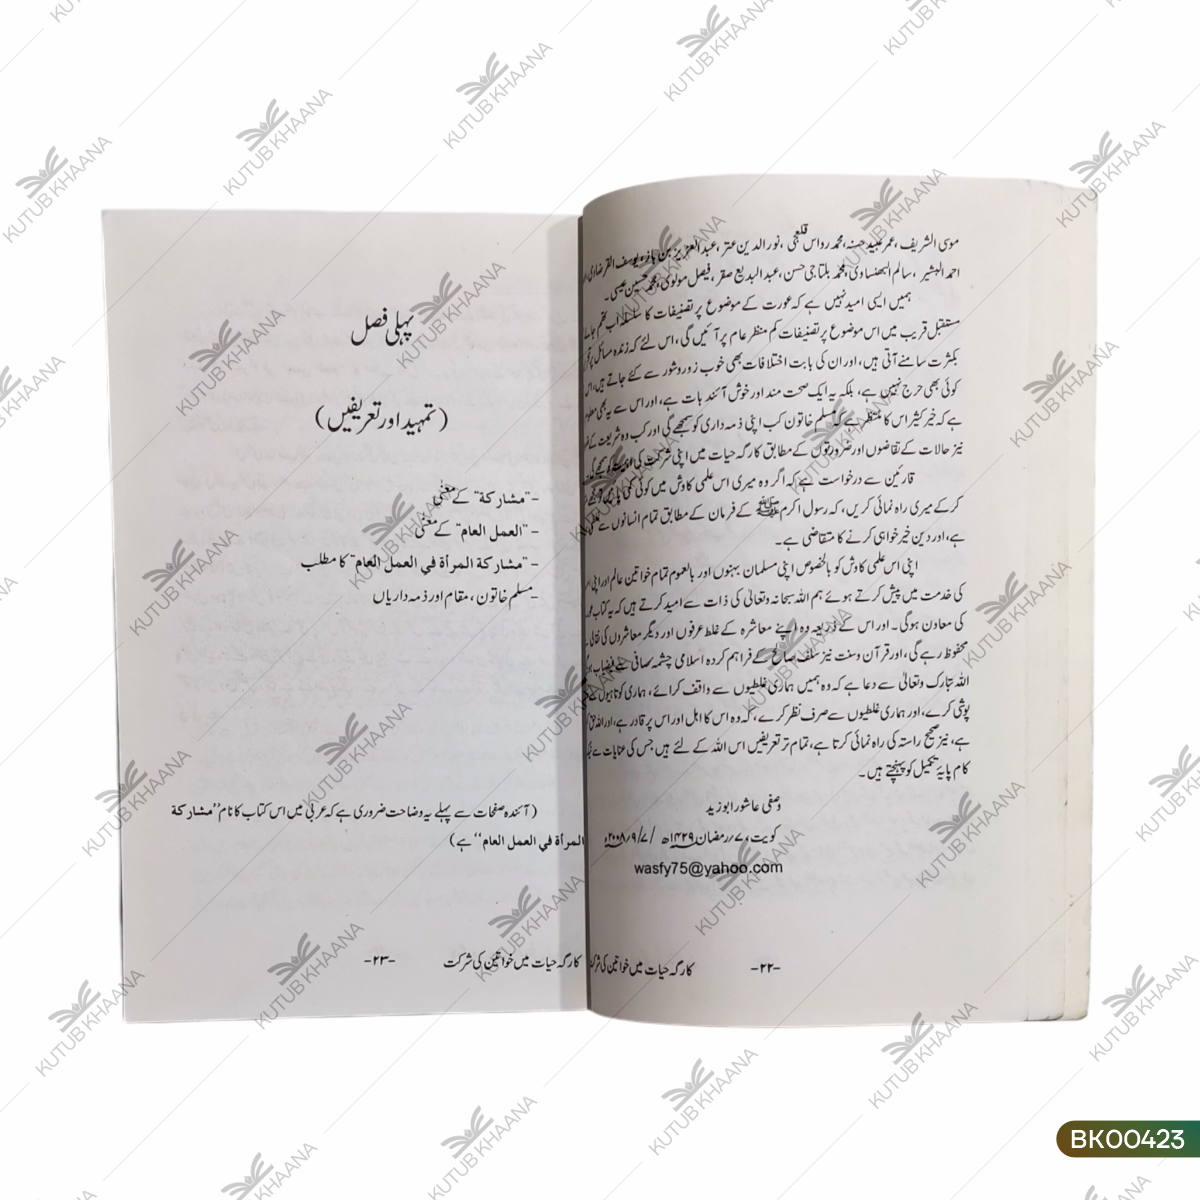 موسی الشریف، عمر عبید حسنہ، محمد رواس قلعجی، نور الدین عتر، عبد العزیز بن باز، یوسف القرضاوی،
احمد البشیر، سالم البھنساوی، محمد بلتاجی حسن، عبد البدیع صقر، فیصل مولوی، محمد حسین عیسی۔
ہمیں ایسی امید نہیں ہے کہ عورت کے موضوع پر تصنیفات کا سلسلہ اب تھم جائے
مستقبل قریب میں اس موضوع پر تصنیفات کم منظر عام پر آئیں گی، اس لئے کہ زندہ مسائل پر
بکثرت سامنے آتی ہیں، اور ان کی بابت اختلافات بھی خوب زور و شور سے کئے جاتے ہیں، اس
کوئی بھی حرج نہیں ہے، بلکہ یہ ایک صحت مند اور خوش آئند بات ہے، اور اس سے یہ بھی معلوم
ہے کہ خیر کثیر اس کا منتظر ہے کہ مسلم خاتون کب اپنی ذمہ داری کو سمجھے گی اور کب وہ شریعت کے
نیز حالات کے تقاضوں اور ضرورتوں کے مطابق کارگہ حیات میں اپنی شرکت کی اہمیت کو سمجھے گی۔
قارئین سے درخواست ہے کہ اگر وہ میری اس علمی کاوش میں کوئی کمی پائیں تو مجھے
کر کے میری راہ نمائی کریں، کہ رسول اکرم ﷺ کے فرمان کے مطابق تمام انسانوں سے
ہے، اور دین خیر خواہی کرنے کا متقاضی ہے۔
اپنی اس علمی کاوش کو بالخصوص اپنی مسلمان بہنوں اور بالعموم تمام خواتین عالم اور اپنی
کی خدمت میں پیش کرتے ہوئے ہم اللہ سبحانہ وتعالی کی ذات سے امید کرتے ہیں کہ یہ کتاب
کی معاون ہوگی۔ اور اس کے ذریعہ وہ اپنے معاشرہ کے غلط عرفوں اور دیگر معاشروں کی نقالی سے
محفوظ رہے گی، اور قرآن وسنت نیز سلف صالح کے فراہم کردہ اسلامی چشمہ صافی سے فیضیاب
اللہ تبارک وتعالی سے دعا ہے کہ وہ ہمیں ہماری غلطیوں سے واقف کرائے، ہماری کوتاہیوں سے
پوشی کرے، اور ہماری غلطیوں سے صرف نظر کرے، کہ وہ اس کا اہل اور اس پر قادر ہے، اور اللہ حق
ہے، نیز صحیح راستہ کی راہ نمائی کرتا ہے، تمام تر تعریفیں اس اللہ کے لئے ہیں جس کی عنایات سے نیک
کام پایہ تکمیل کو پہنچتے ہیں۔
وصفی عاشور ابوزید
کویت، ۷؍رمضان ۱۴۲۹ھ / ۷؍۹؍۲۰۰۸ء
wasfy75@yahoo.com
-۲۲- کارگہ حیات میں خواتین کی شرکت
پہلی فصل
(تمہید اور تعریفیں)
-"مشاركة" کے معنی
-"العمل العام" کے معنی
-"مشاركة المرأة في العمل العام" کا مطلب
-مسلم خاتون، مقام اور ذمہ داریاں
(آئندہ صفحات سے پہلے یہ وضاحت ضروری ہے کہ عربی میں اس کتاب کا نام "مشاركة
المرأة في العمل العام" ہے)
کارگہ حیات میں خواتین کی شرکت -۲۳-
KUTUB KHAANA
BK00423